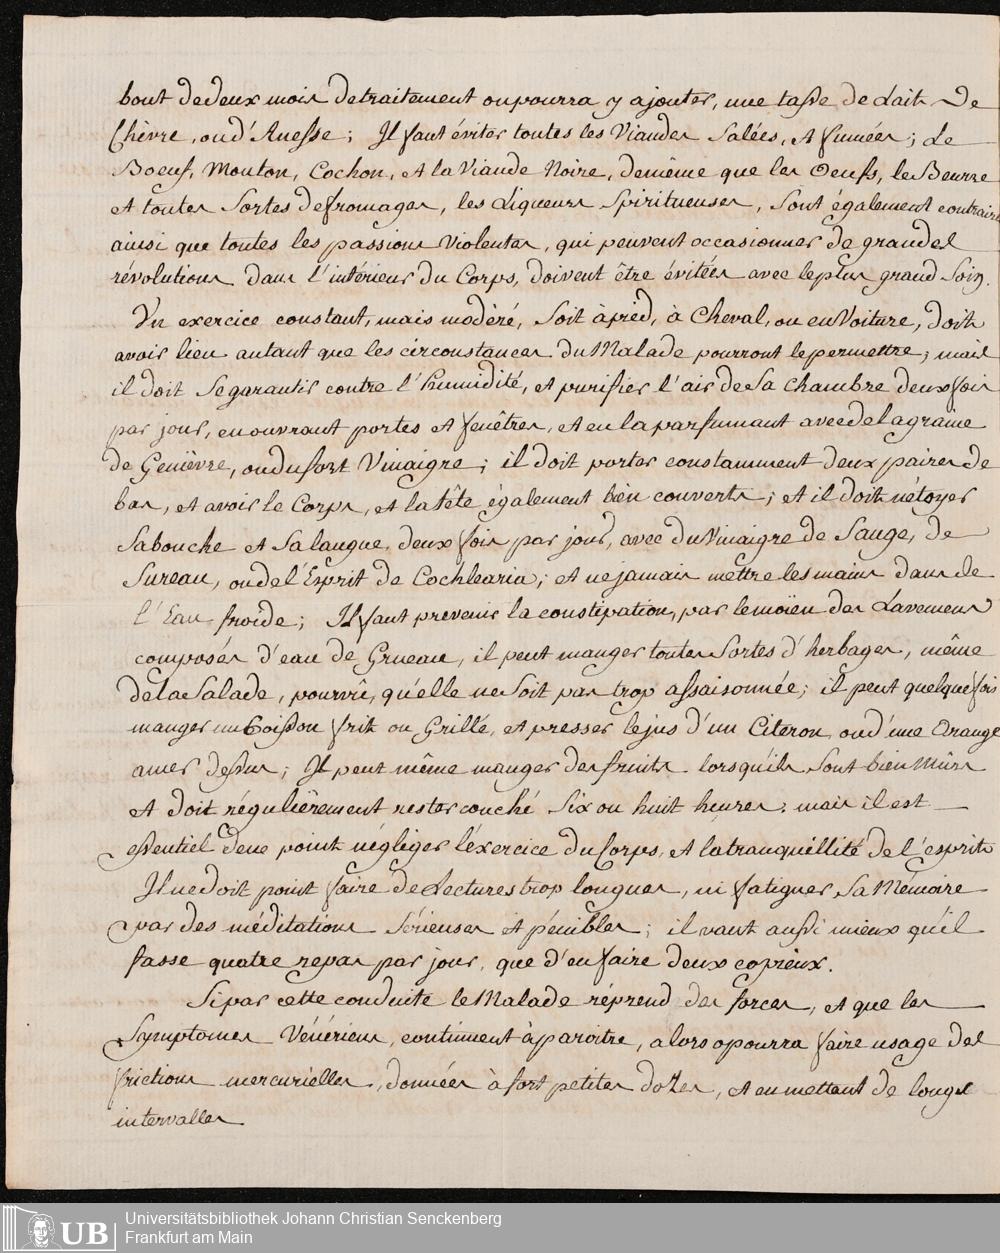 bout de deux mois de traitement on pourra y ajouter, une tasse de Lait de
Chèvre, ou d'Anesse; Il faut éviter toutes les Viandes Salées, et fumées; Le
Boeuf, Mouton, Cochon, et la Viande Noire, de même que les Oeufs, le Beurre
et toutes Sortes de fromages, les Liqueurs Spiritueuses, Sont également contraires
ainsi que toutes les passions Violentes, qui peuvent occasionner de grandes
révolutions dans l'intérieur du Corps, doivent être évitées avec le plus grand Soin.
Un exercice constant, mais modéré, Soit à pied, à Cheval, ou en Voiture, doit
avoir lieu autant que les circonstances du Malade pourront le permettre; mais
il doit Se garantir contre l'humidité, et purifier l'air de Sa chambre deux fois
par jour, en ouvrant portes et fenêtres, et en la parfumant avec de la graine
de Genièvre, ou du fort Vinaigre; il doit porter constamment deux paires de
bas, et avoir le Corps, et la tête également bien couverts; et il doit nétoyer
Sa bouche et Sa langue, deux fois par jour, avec du Vinaigre de Sauge, de
Sureau, ou de l'Esprit de Cochlearia; et ne jamais mettre les mains dans de
l'Eau froide; Il faut prevenir la constipation, par le moïen des Lavemens
composés d'eau de Grueau, il peut manger toutes Sortes d'herbages, même
de la Salade, pourvû, qu'elle ne Soit pas trop assaisonnée; il peut quelque fois
manger un Poisson frit ou Grillé, et presser le jus d'un Citeron, ou d'une Orange
amer dessus; Il peut même manger des fruits lorsqu'ils Sont bien Mûrs
et doit régulièrement rester couché Six ou huit heures; mais il est
essentiel de ne point négliger l'éxercice du Corps, et la tranquillité de l'esprit
Il ne doit point faire de Lectures trop longues, ni fatiguer Sa Mémoire
par des méditations Sérieuses et pénibles; il vaut aussi mieux qu'il
fasse quatre repas par jour, que d'en faire deux copieux.
Si par cette conduite le Malade réprend des forces, et que les
Symptomes Vénériens, continuent à paroitre, alors o pourra faire usage des
frictions mercurielles, données à fort petites dozes, et en mettant de longs
intervalles
Universitätsbibliothek Johann Christian Senckenberg
Frankfurt am Main
UB